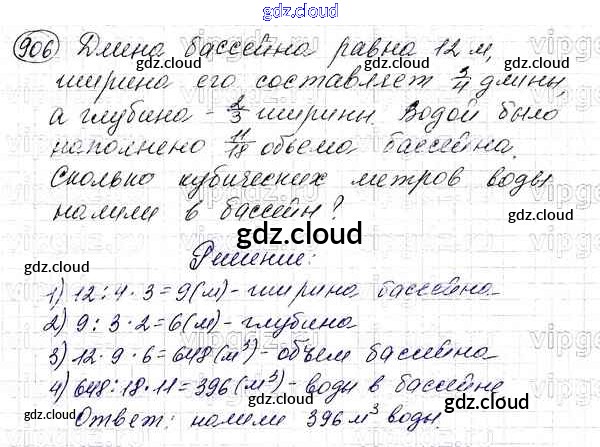 gdz.cloud
gdz.cloud gdz.cloud
906 Длина бассейна равна 12 м,
ширина его составляет 3/4 длины,
а глубина - 2/3 ширины. Водой было
наполнено 11/18 объема бассейна.
Сколько кубических метров воды
налили в бассейн?
gdz.cloud
gdz.cloud gdz.cloud
Решение:
1) 12 : 4 · 3 = 9 (м) - ширина бассейна
2) 9 : 3 · 2 = 6 (м) - глубина
3) 12 · 9 · 6 = 648 (м³) - объем бассейна
4) 648 : 18 · 11 = 396 (м³) - воды в бассейне
Ответ: налили 396 м³ воды.
gdz.cloud gdz.cloud
gdz.cloud